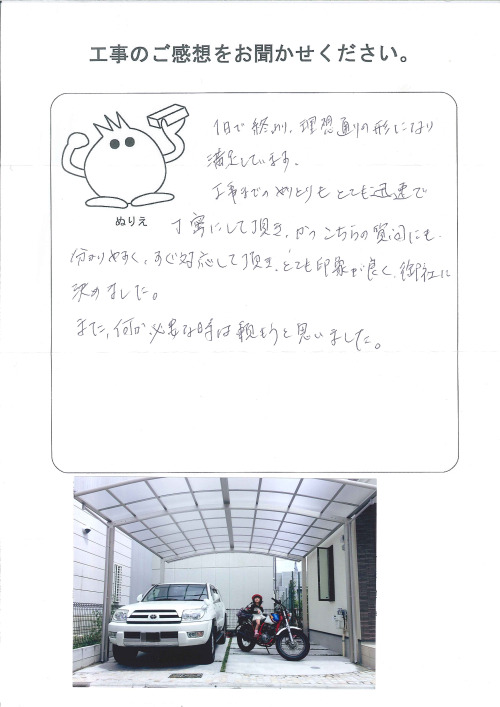 工事のご感想をお聞かせください。
1日で終わり、理想通りの形になり
満足しています。
工事までのやりとりもとても迅速で
丁寧にして頂き、かつこちらの質問にも
分かりやすく、すぐ対応して頂き、とても印象が良く、御社に
決めました。
また、何か必要な時は頼もうと思いました。
ぬりえ